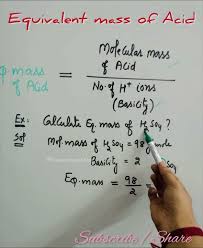 Equivalent mass of Acid
Molecular mass
of Acid
Eq. mass
of Acid
=
No. of H+ ions
(Basicity)
Ex: Calculate Eq mass of H2SO4 ?
Sol Mol. mass of H2SO4 = 98 g/mole
Basicity = 2
Eq. mass = 98
2
Subscribe / Share